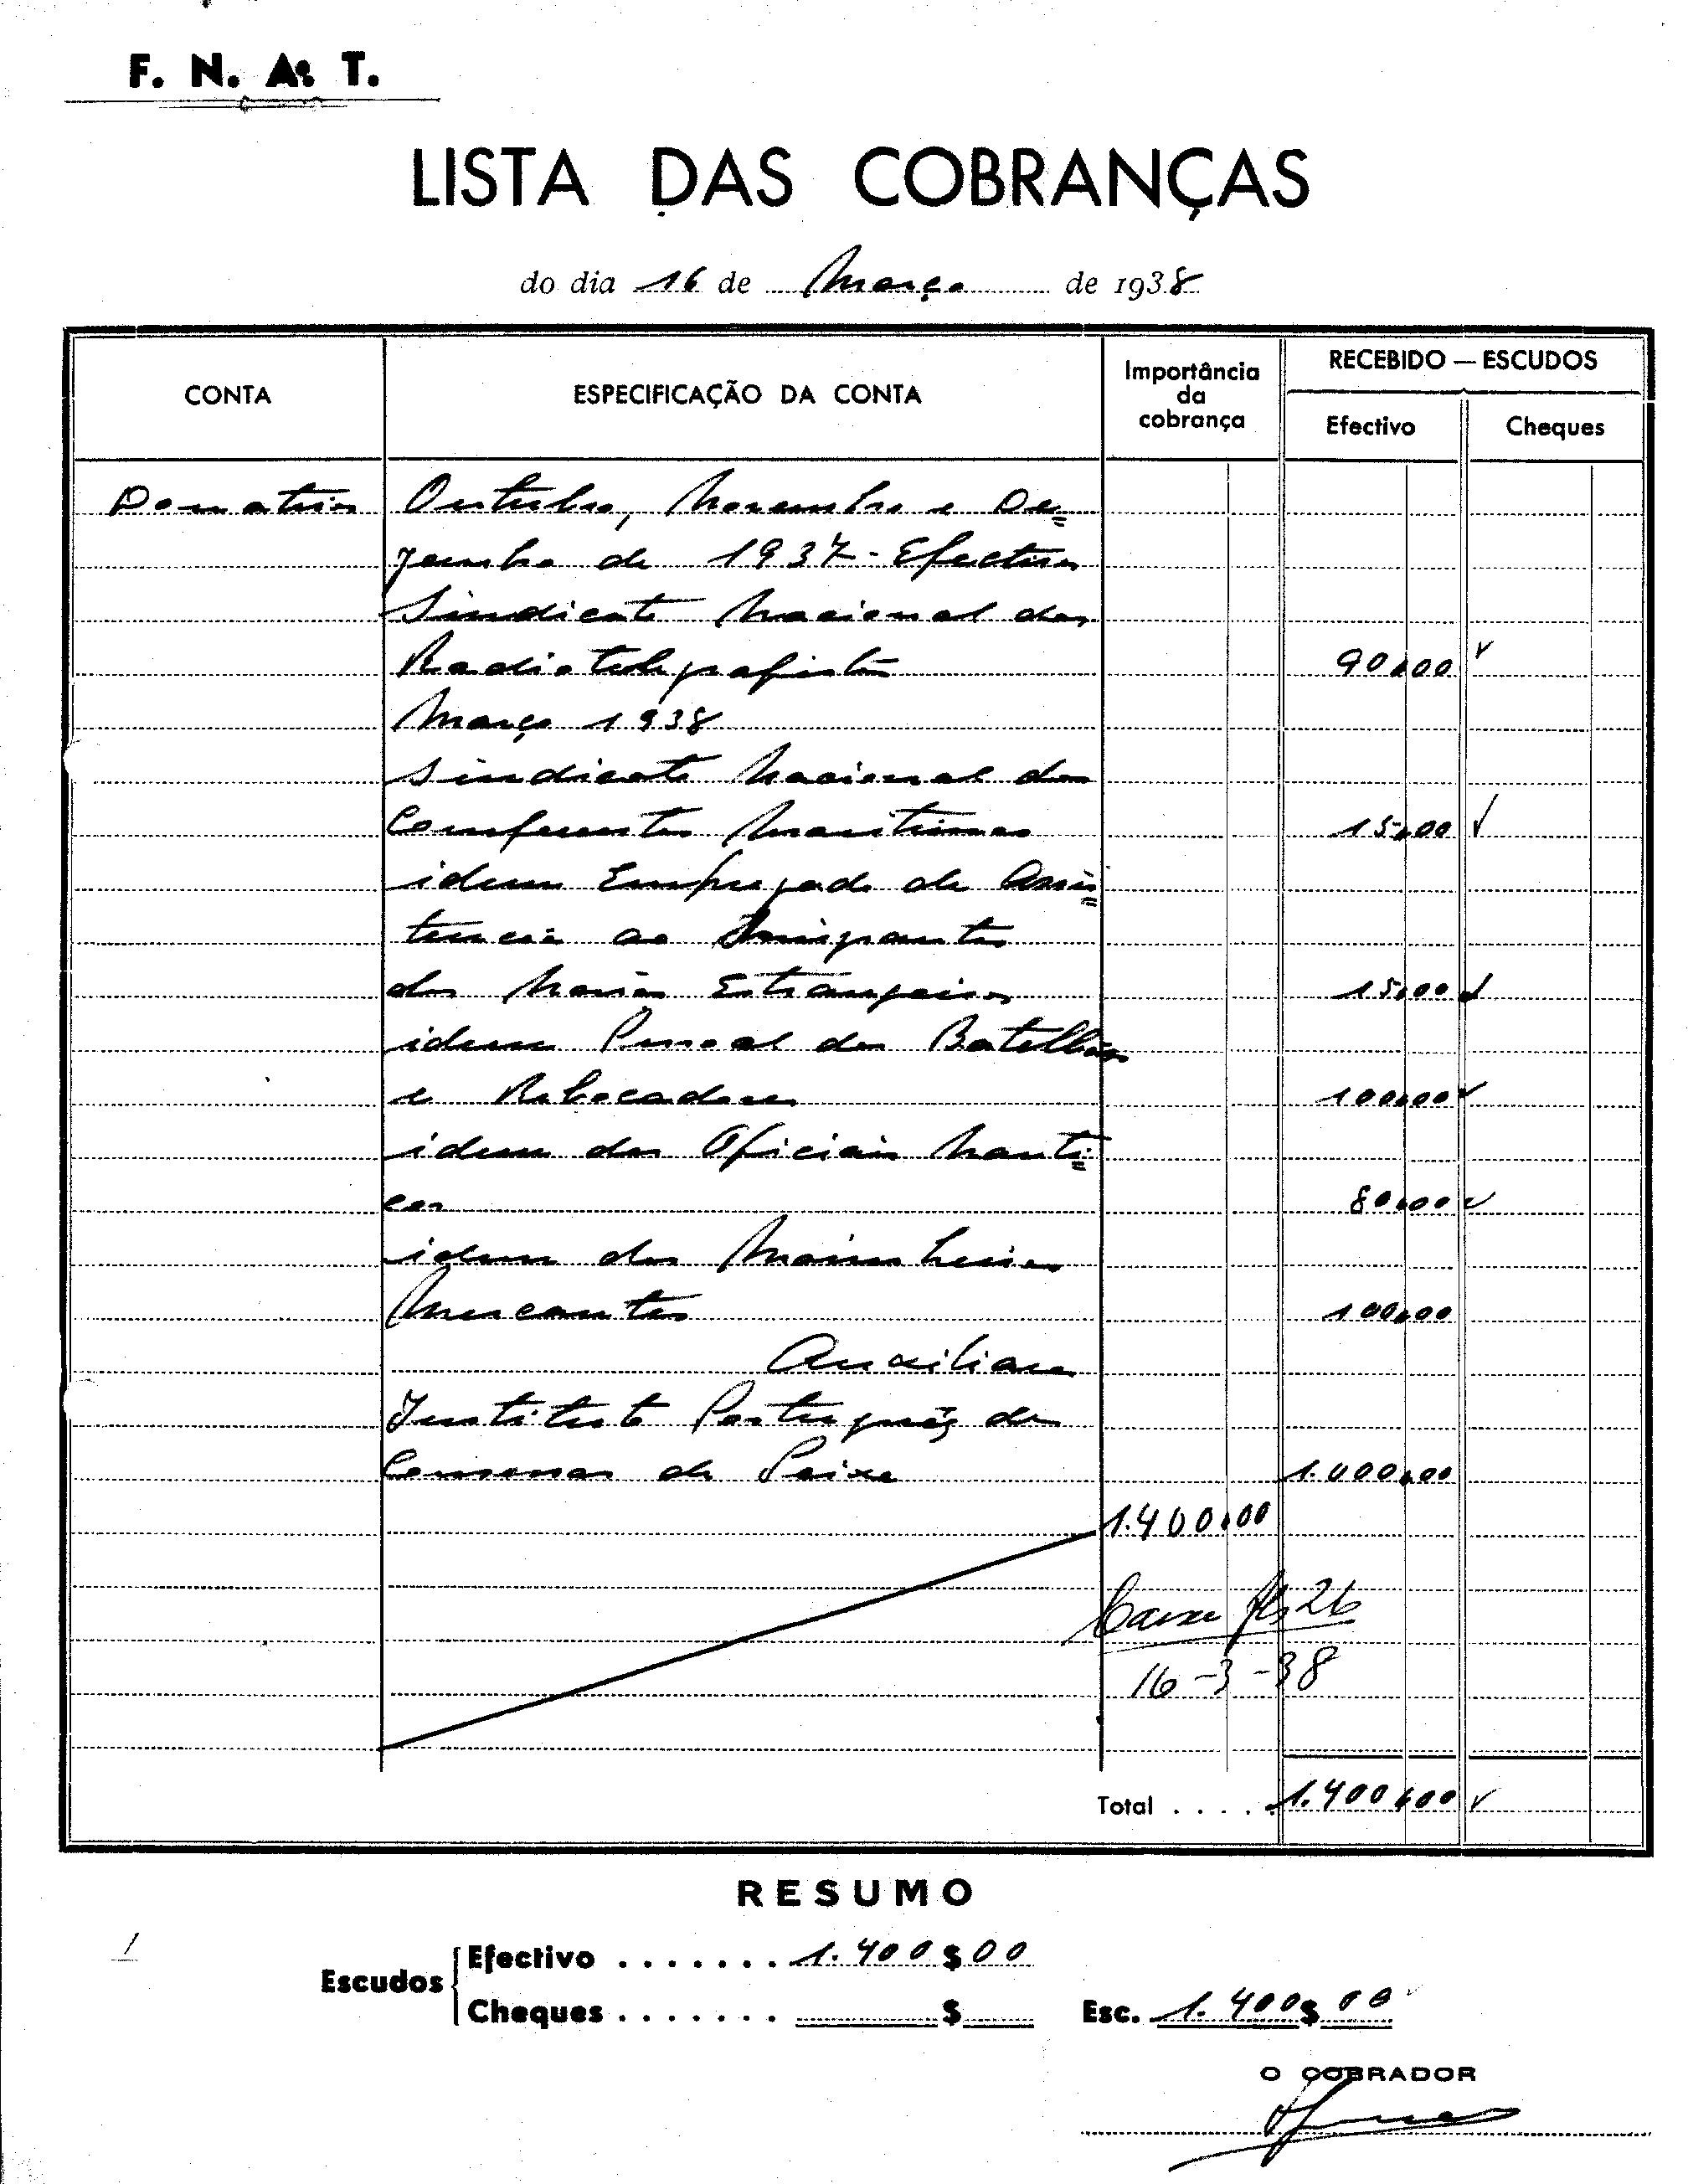 F. N. A. T.
LISTA DAS COBRANÇAS
do dia 16 de Março de 1938
CONTA
ESPECIFICAÇÃO DA CONTA
Importância
da
cobrança
RECEBIDO — ESCUDOS
Efectivo
Cheques
Donativos Outubro, Novembro e De=
zembro de 1937 - Efectivos
Sindicato Nacional dos
Radiotelegrafistas 90,00
Março 1938
Sindicato Nacional dos
Conferentes Maritimos 15,00
idem Empregado de Assis=
tencia ao Emigrantes
dos Navios Estrangeiros 15,00
idem Pessoal dos Batelões
e Rebocadores 100,00
idem dos Oficiais Nauti=
cos 80,00
idem dos Marinheiros
Mercantes 100,00
Auxiliares
Instituto Português de
Conservas de Peixe 1.000,00
1.400,00
Caixa fls 26
16-3-38
Total . . . . . 1.400,00
RESUMO
Escudos
Efectivo . . . . . . . 1.400$00
Cheques . . . . . . . $
Esc. 1.400$00
O COBRADOR